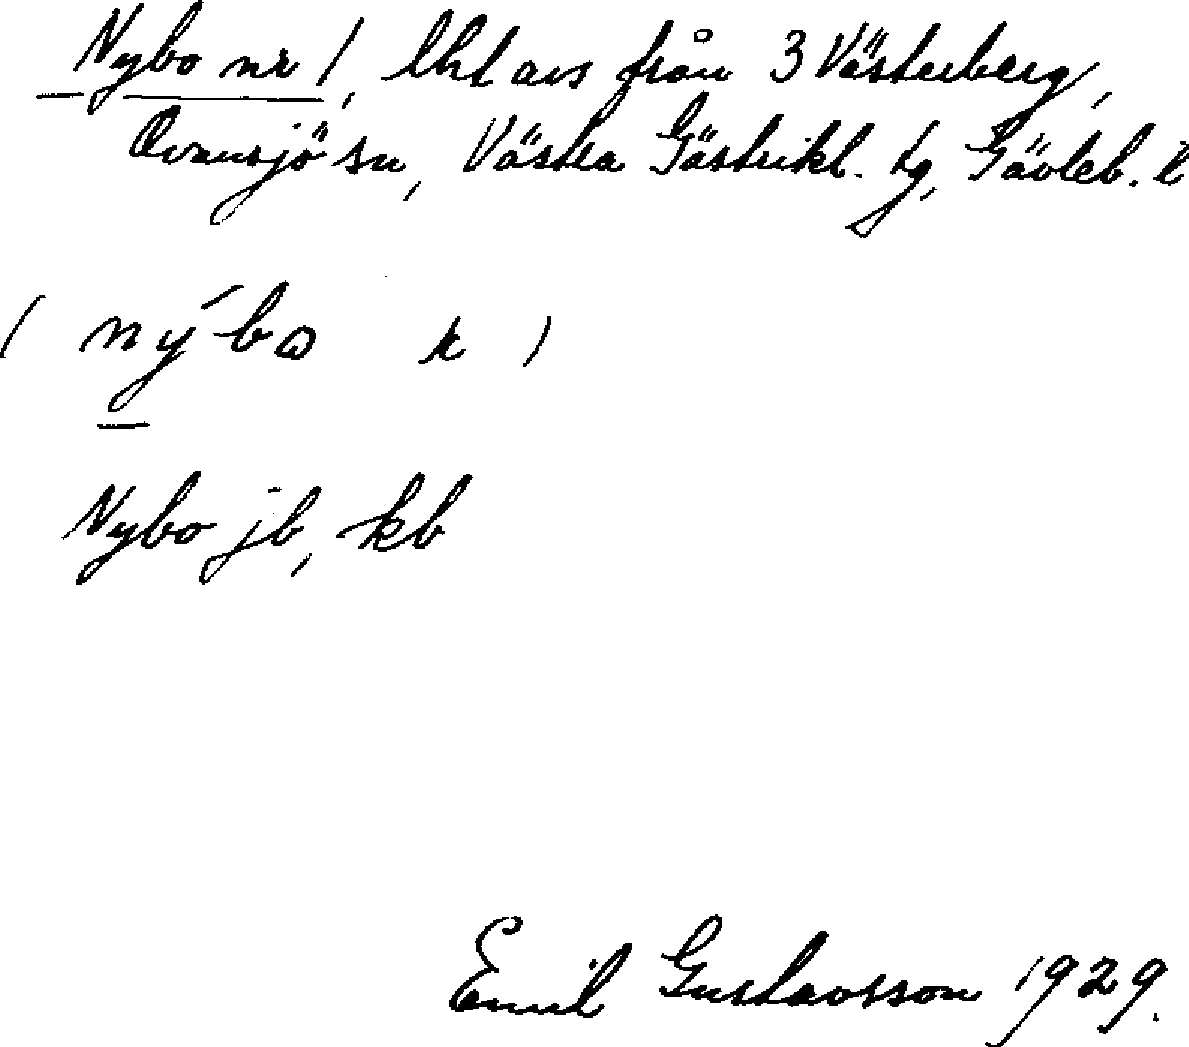 Nybo nr 1, lht avs från 3 Västerberg,
Ovansjö sn, Västra Gästrikl. tg, Gävleb. l
( nýbo k )
Nybo jb, kb
Emil Gustavsson 1929.